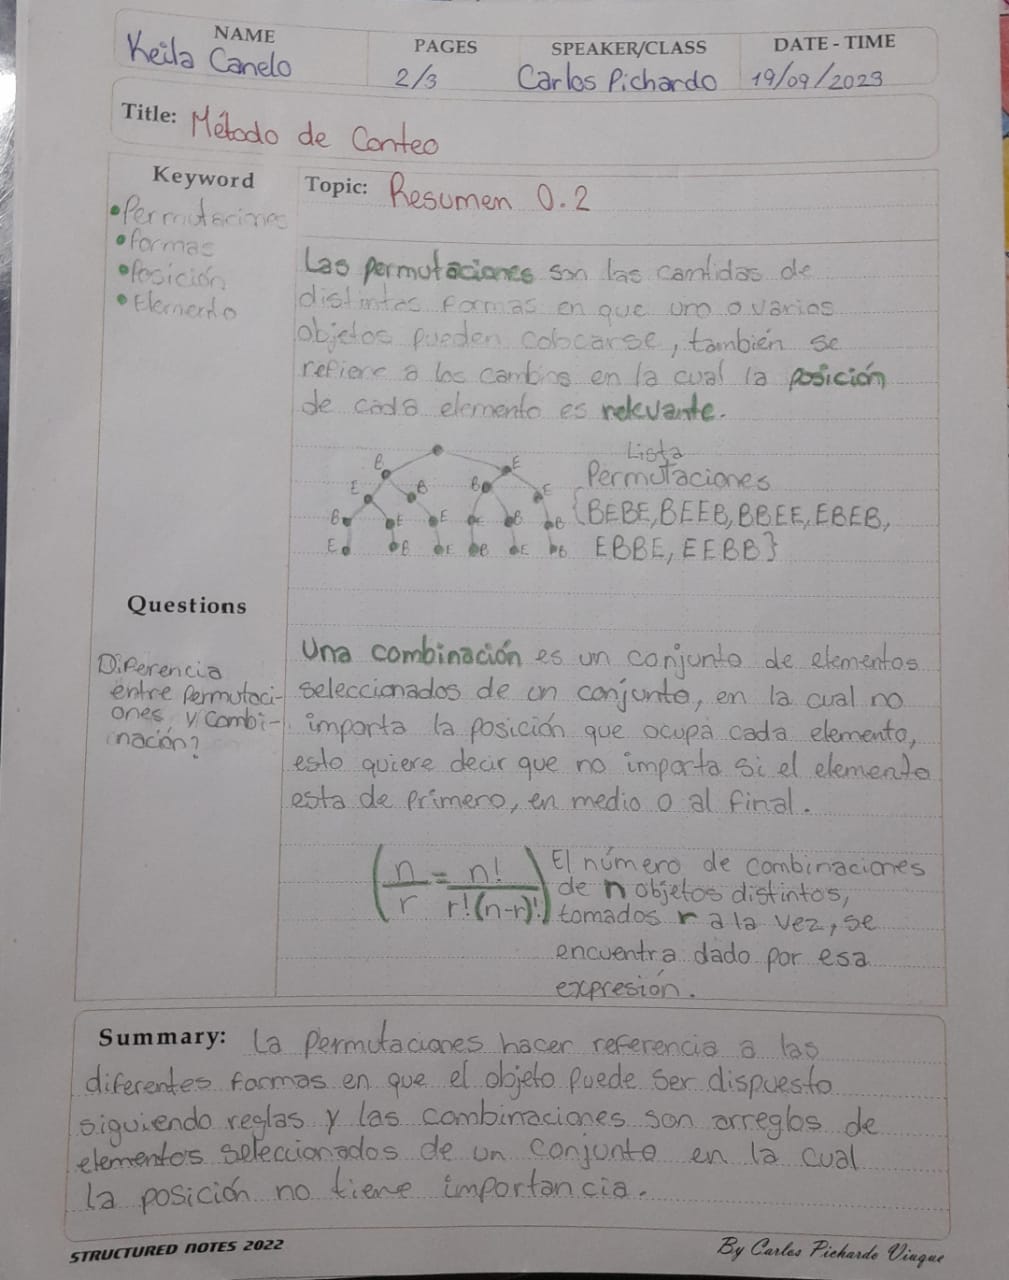 NAME
PAGES
SPEAKER/CLASS
DATE - TIME
Keila Canelo
2/3
Carlos Pichardo
19/09/2023
Title: Método de Conteo
Keyword
•Permutaciones
•formas
•Posición
•Elemento
Topic: Resumen 0.2
Las permutaciones son las cantidas de
distintas formas en que uno o varios
objetos pueden colocarse, también se
refiere a los cambios en la cual la posición
de cada elemento es relevante.
B E
E B B E
B E E E B B
E B E B E B
Lista
Permutaciones
{BEBE, BEEB, BBEE, EBEB,
EBBE, EEBB}
Questions
Diferencia
entre Permutaci-
ones y Combi-
nación?
Una combinación es un conjunto de elementos
seleccionados de un conjunto, en la cual no
importa la posición que ocupa cada elemento,
esto quiere decir que no importa si el elemento
esta de primero, en medio o al final.
(n/r = n!/r!(n-r)!)
El número de combinaciones
de n objetos distintos,
tomados r a la vez, se
encuentra dado por esa
expresión.
Summary: La Permutaciones hacer referencia a las
diferentes formas en que el objeto puede ser dispuesto
siguiendo reglas y las combinaciones son arreglos de
elementos seleccionados de un conjunto en la cual
la posición no tiene importancia.
STRUCTURED NOTES 2022
By Carlos Pichardo Viuque